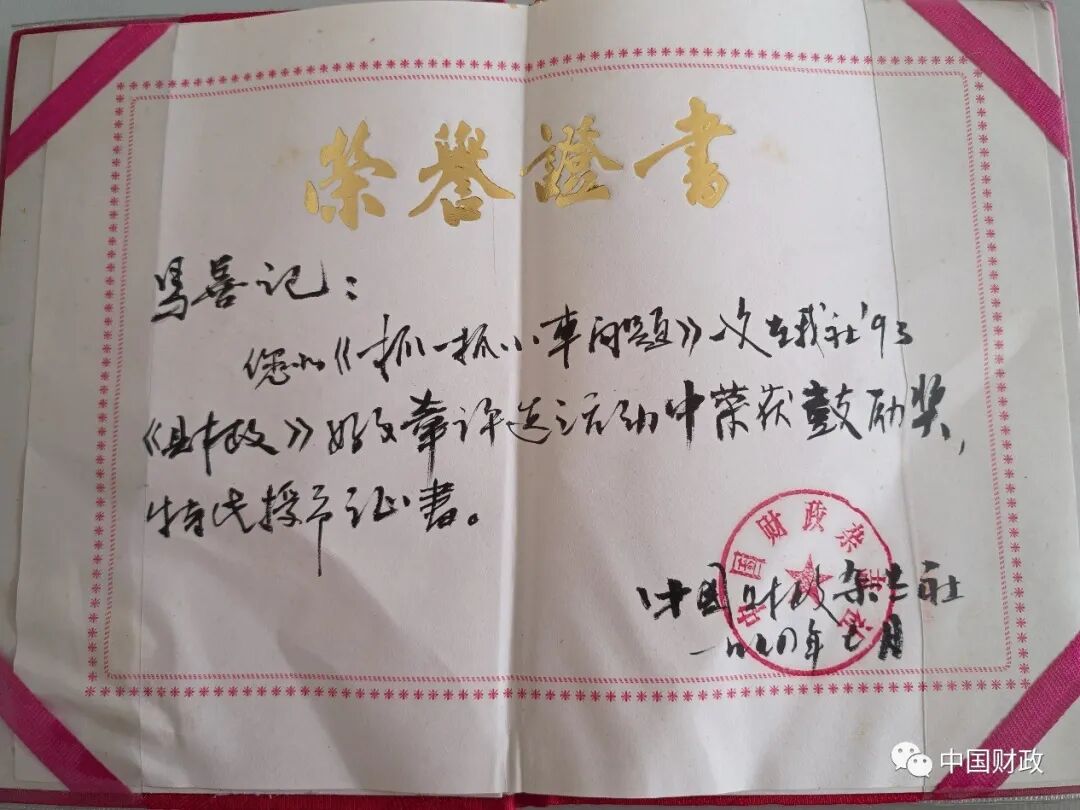 榮譽證書
喜记：
您的《抓一抓小车问题》一文在我社'93
《财政》好文章评选活动中荣获鼓励奖，
特此授予证书。
中国财政杂志社
中国财政杂志社
一九九四年七月
中国财政